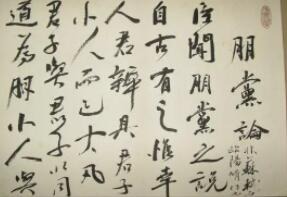 朋黨論
歐陽
臣聞朋黨之說
自古有之惟幸
人君辨其君子
小人而已大凡
君子與君子以同
道為朋小人與